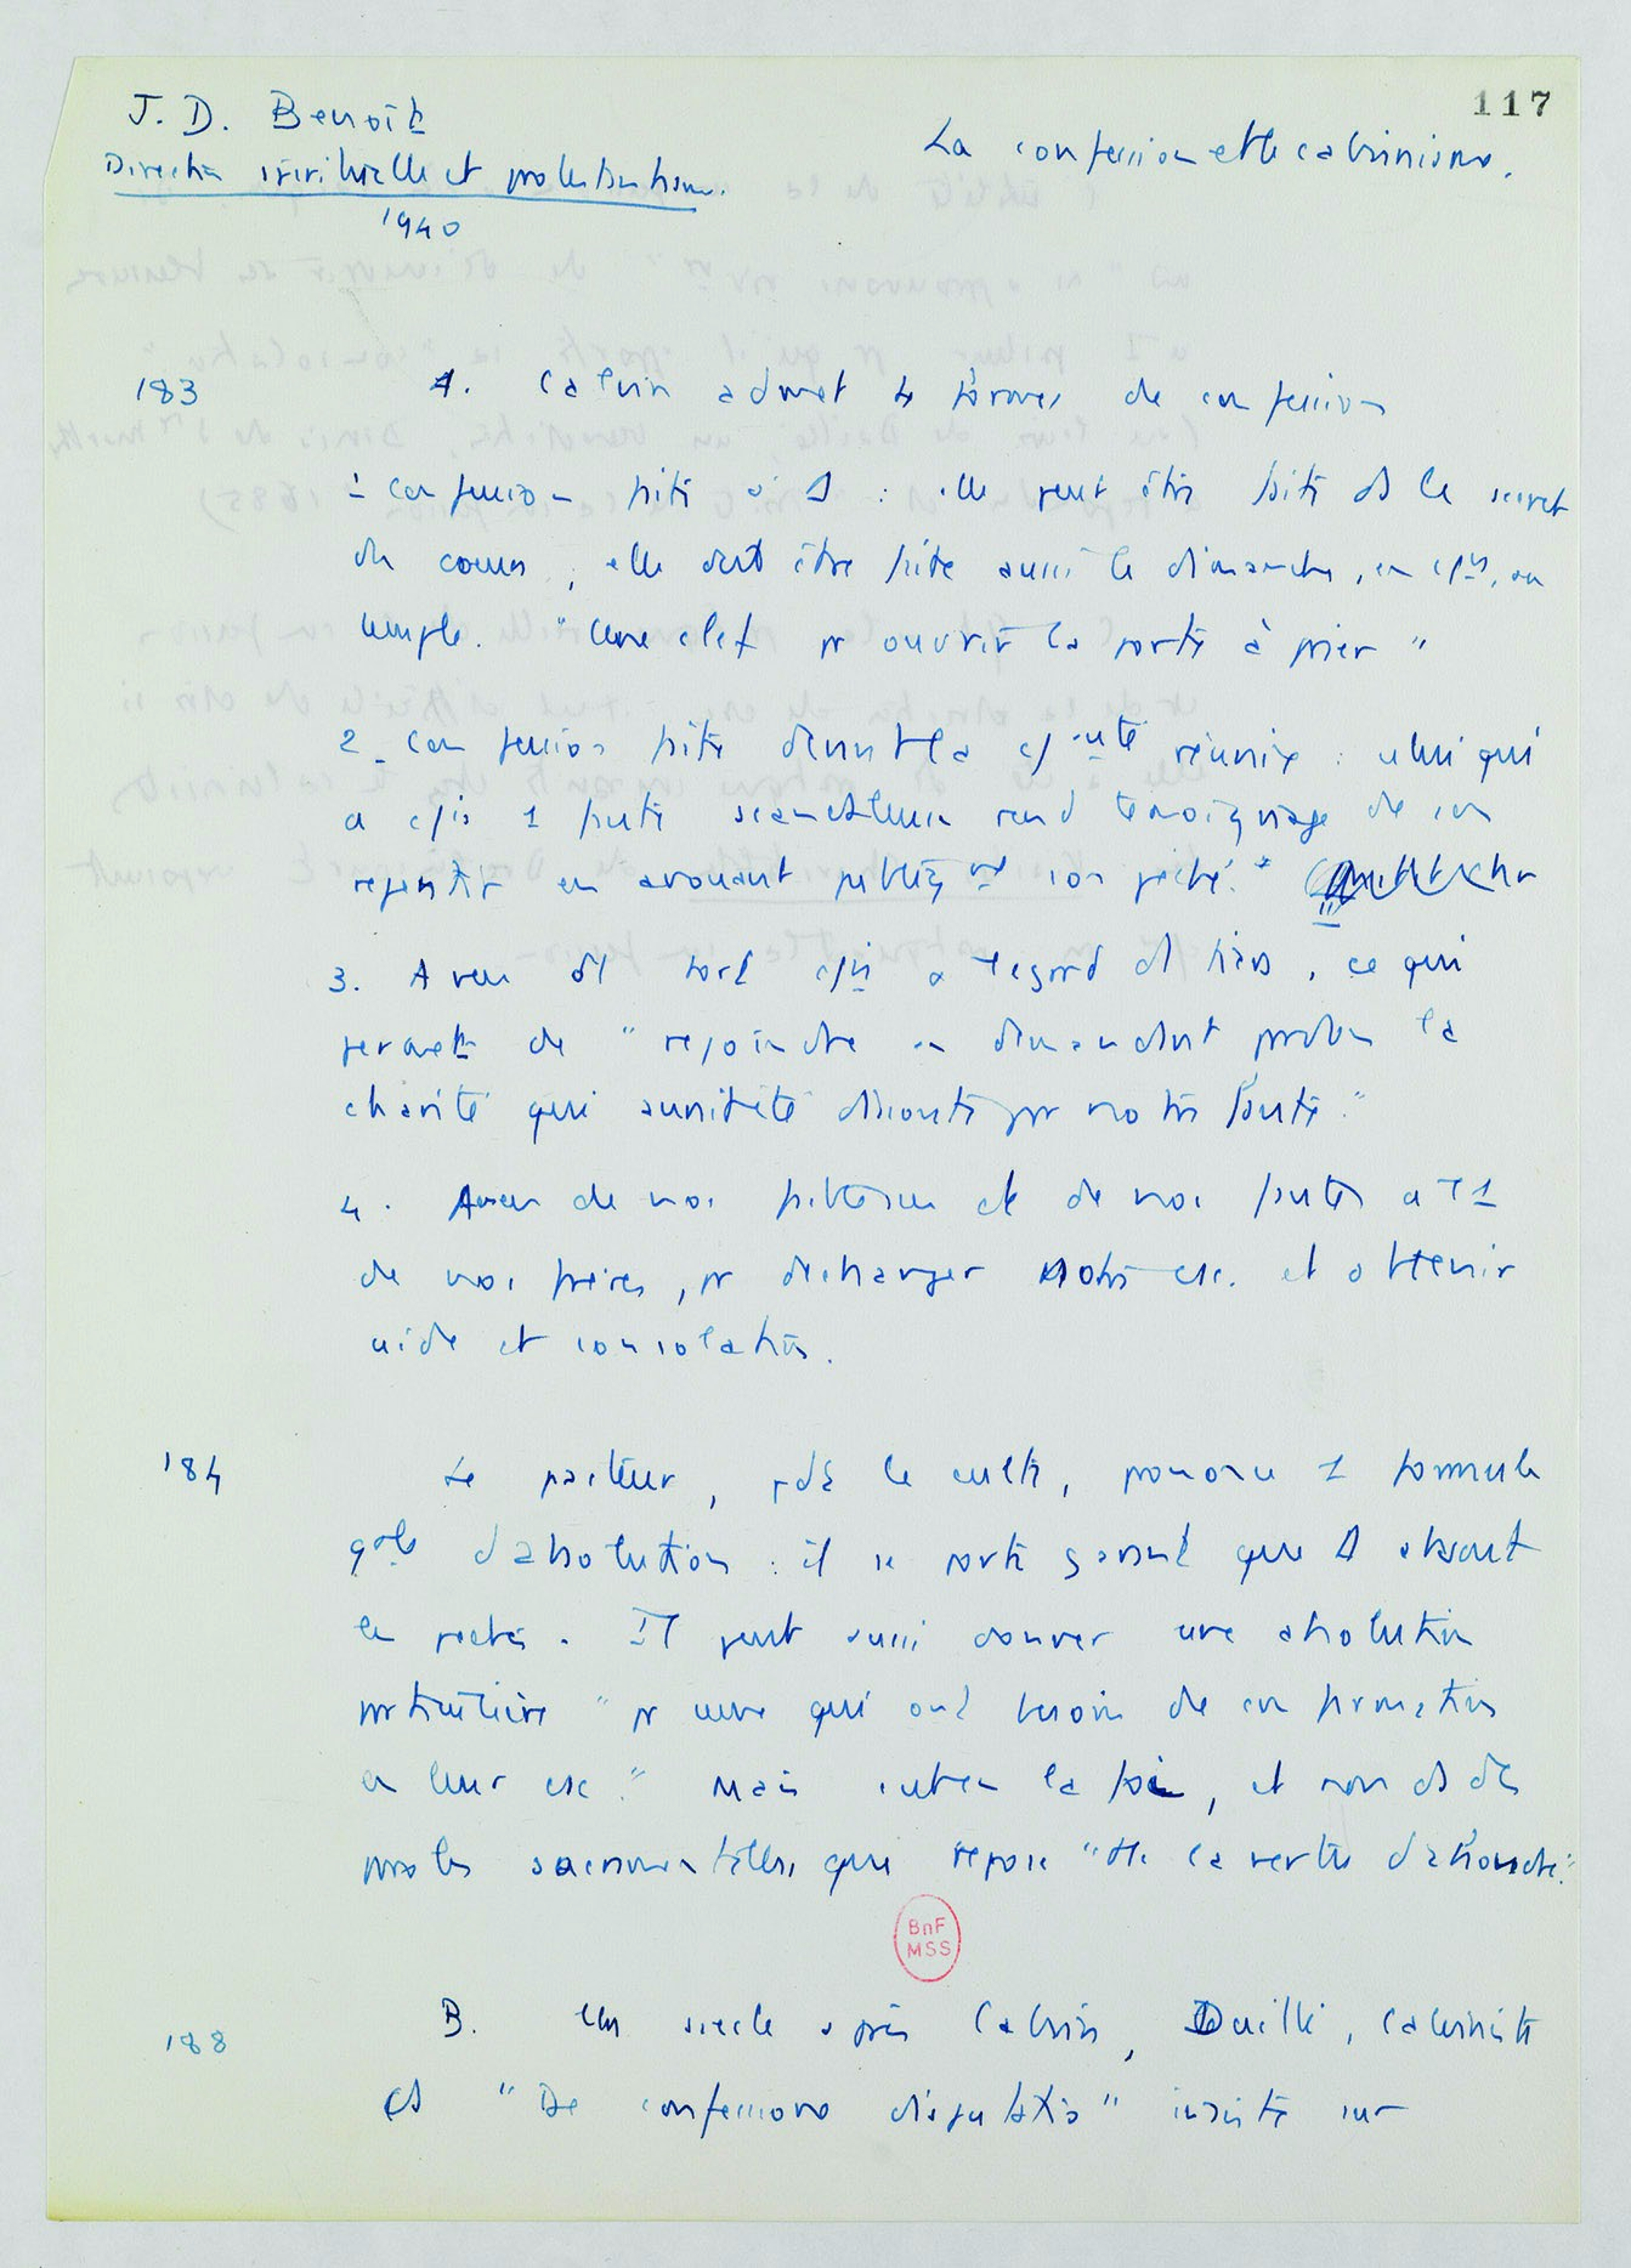 117
J. D. Benoît
Direction spirituelle et protestantisme.
1940
La confession et le calvinisme.
183
A. Calvin admet 4 formes de confession
1 confession faite à D : elle peut être faite ds le secret
du coeur, elle doit être faite aussi le dimanche, en , au
temple. "Une clef pr ouvrir la porte à prier"
2. confession faite devant la réunie : celui qui
a cis 1 faute scandaleuse rend témoignage de son
repentir en avouant publiqt son péché."
3. Aveu du tort cis a l'egard du , ce qui
permet de "rejoindre en demandant pardon la
charité qui aurait été dissoute par notre faute."
4. Aveu de nos faiblesses et de nos fautes a l'1
de nos frères, pr decharger notre csc. et obtenir
aide et consolation.
184
Le pasteur, pdt le culte, prononce 1 formule
gale d'absolution : il se porte garant que D absout
les péchés. Il peut aussi donner une absolution
particulière "pr ceux qui ont besoin de confirmation
en leur csc." Mais c'est en la foi, et non ds des
paroles sacramentelles que repose "tte la vertu d'absoudre."
BnF
MSS
188
B. Un siecle après Calvin, Daillé, calviniste
ds "De confessione disputatio" insiste sur